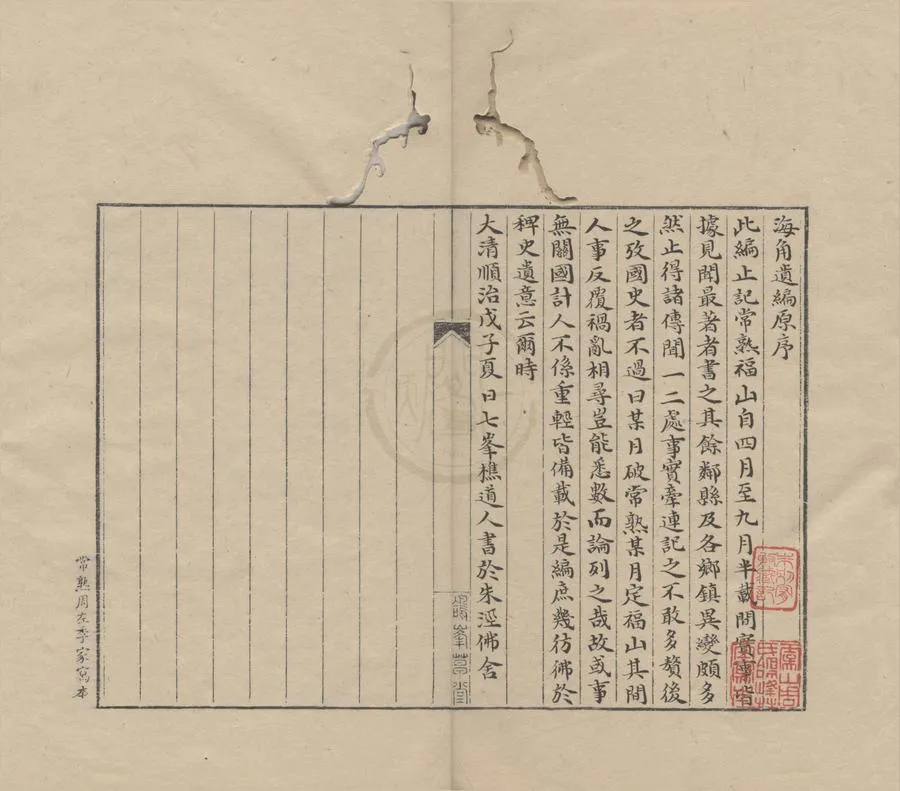 海角遺編原序
此編止記常熟福山自四月至九月半載間實事皆
據見聞最著者書之其餘鄰縣及各鄉鎮異變頗多
然止得諸傳聞一二處事實牽連記之不敢多贅後
之攷國史者不過曰某月破常熟某月定福山其間
人事反覆禍亂相尋豈能悉數而論列之哉故或事
無關國計人不係重輕皆備載於是編庶幾彷彿於
稗史遺意云爾時
大清順治戊子夏日七峯樵道人書於朱涇佛舍
峯草堂
常熟周左季家寫本